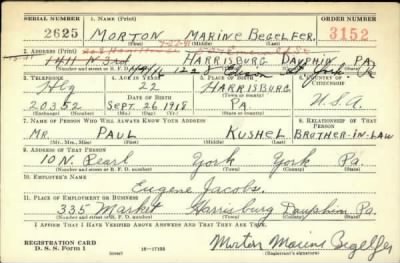 SERIAL NUMBER 1. NAME (Print) ORDER NUMBER
2625 MORTON MARINE BEGELFER 3152
(First) (Middle) (Last)
2. ADDRESS (Print)
1411 N 3rd HARRISBURG DAUPHIN PA.
3. TELEPHONE 4. AGE IN YEARS 5. PLACE OF BIRTH 6. COUNTRY OF CITIZENSHIP
Hbg 22 HARRISBURG
DATE OF BIRTH (Town or county)
20352 SEPT. 26 1918 PA. U.S.A.
7. NAME OF PERSON WHO WILL ALWAYS KNOW YOUR ADDRESS 8. RELATIONSHIP OF THAT PERSON
MR. PAUL KUSHEL BROTHER-IN-LAW
(Mr., Mrs., Miss) (First) (Middle) (Last)
9. ADDRESS OF THAT PERSON
10 N. Pearl York York Pa.
(Number and street or R. F. D. number) (Town) (County) (State)
10. EMPLOYER'S NAME
Eugene Jacobs.
11. PLACE OF EMPLOYMENT OR BUSINESS
335 Market Harrisburg Dauphin Pa.
(Number and street or R. F. D. number) (Town) (County) (State)
I AFFIRM THAT I HAVE VERIFIED ABOVE ANSWERS AND THAT THEY ARE TRUE.
REGISTRATION CARD
D. S. S. Form 1 (over) Morton Marine Begelfer
(Registrant's signature)